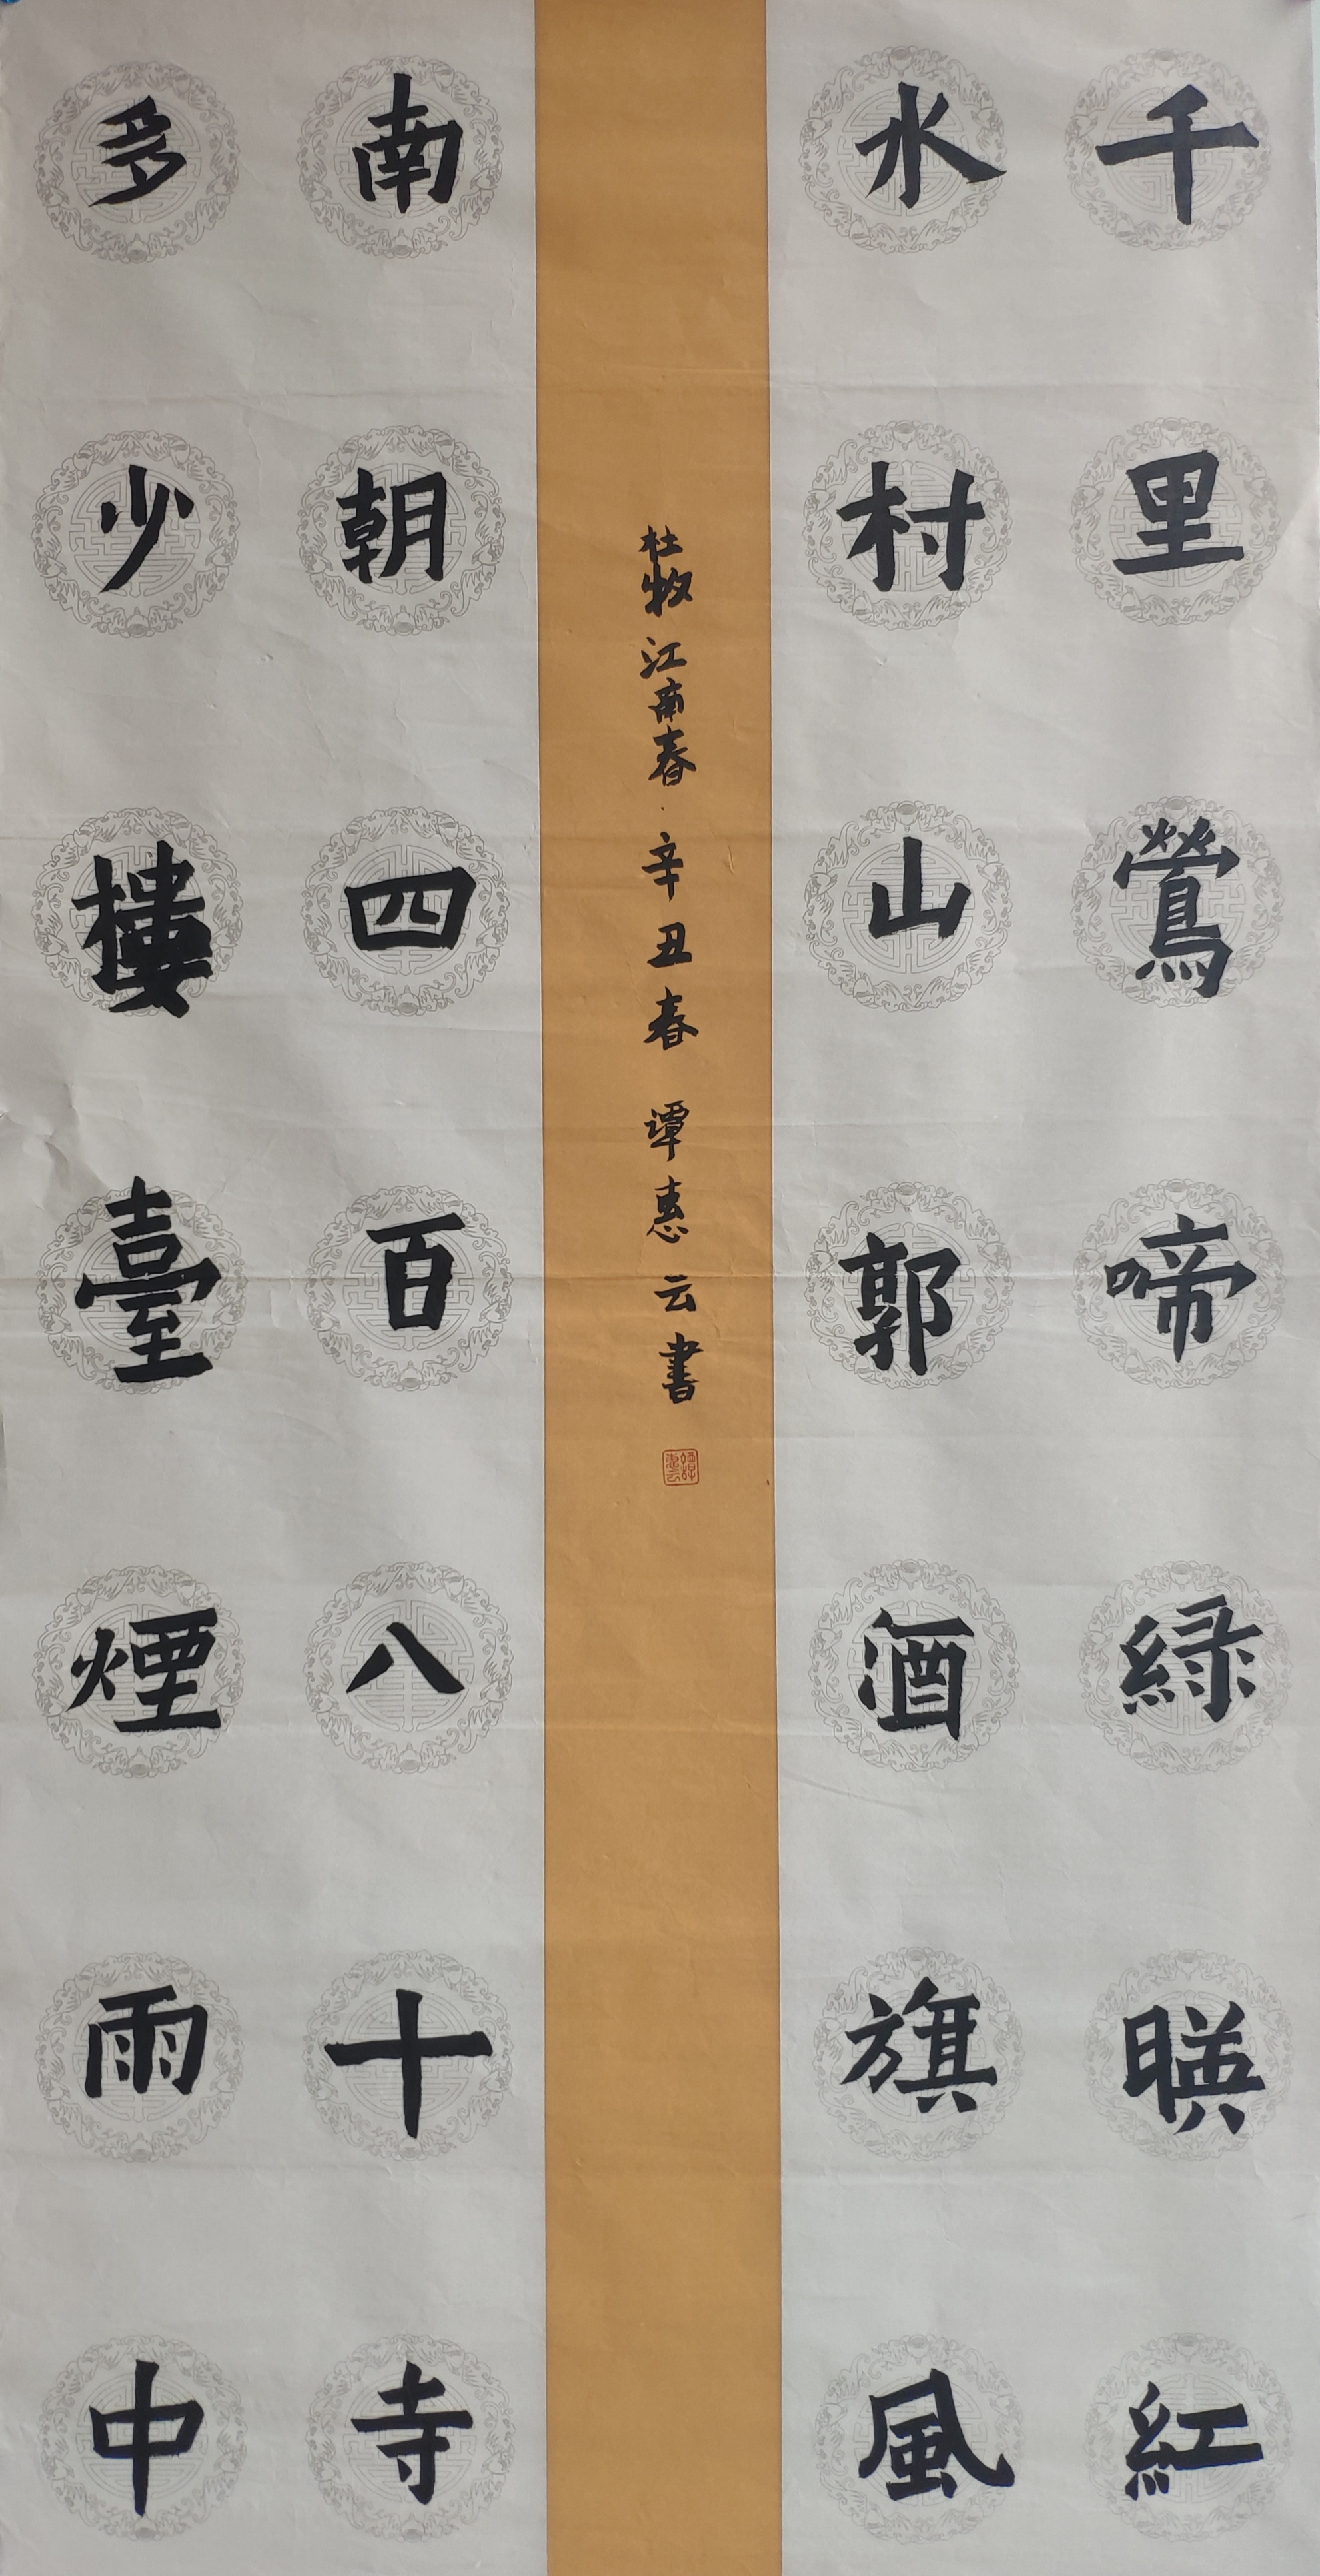 千里鶯啼緑暎紅
水村山郭酒旗風
南朝四百八十寺
多少樓臺煙雨中
杜牧江南春·辛丑春 谭惠云書